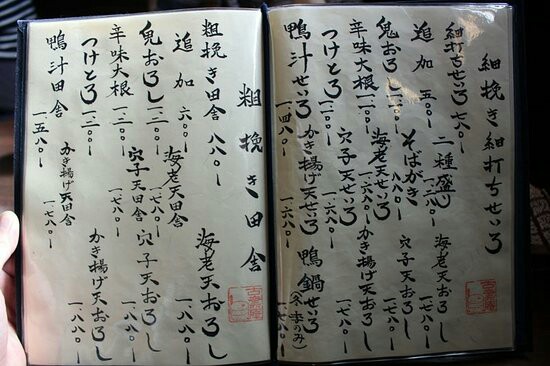 細挽き細打ちせいろ
細打ちせいろ 七八〇ー
追加 五〇〇ー
鬼おろし
辛味大根
つけとろ
鴨汁せいろ 一、四八〇ー
二種盛
そばがき 八八〇ー
海老天せいろ 一、六八〇ー
穴子天せいろ 一、六八〇ー
かき揚げ天せいろ 一、六八〇ー
海老天おろし 一、七八〇ー
穴子天おろし 一、七八〇ー
かき揚げ天おろし 一、七八〇ー
鴨鍋せいろ (冬季のみ) 一、七八〇ー
粗挽き田舎
粗挽き田舎 八八〇ー
追加 六〇〇ー
鬼おろし
辛味大根
つけとろ
鴨汁田舎 一、五八〇ー
海老天田舎 一、七八〇ー
穴子天田舎 一、七八〇ー
かき揚げ天田舎 一、七八〇ー
海老天おろし 一、八八〇ー
穴子天おろし 一、八八〇ー
かき揚げ天おろし 一、八八〇ー